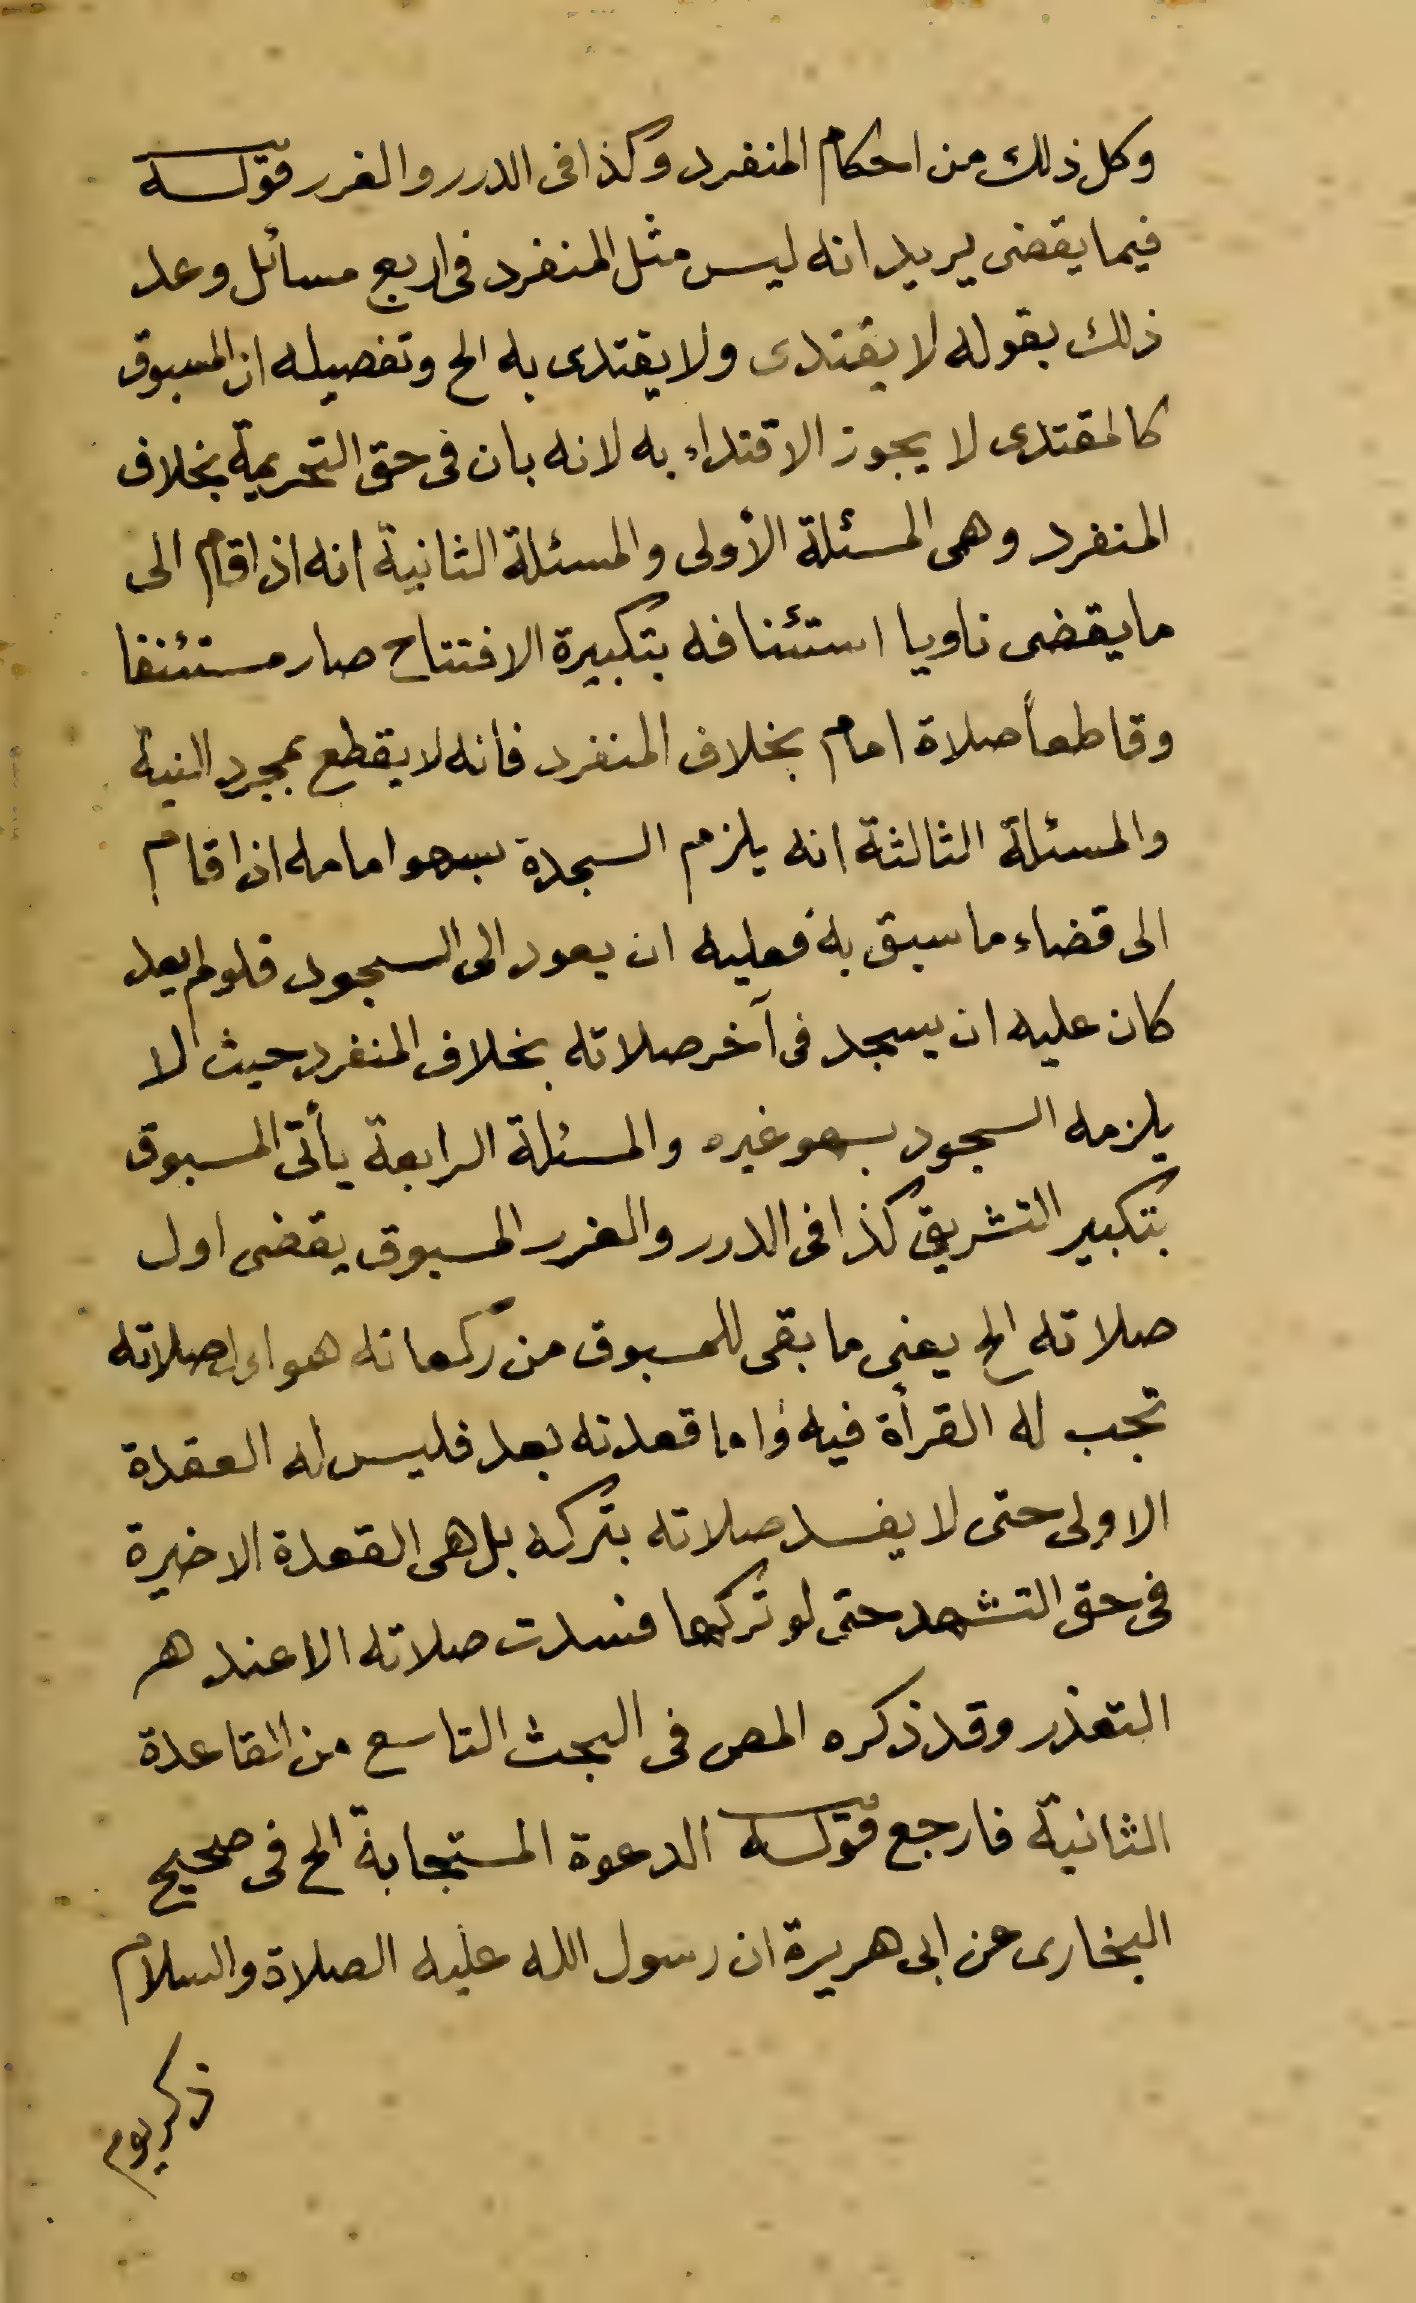 وكل ذلك من احكام المنفرد وكذا فى الدرر والغرر قوله
فيما يقضى يريد انه ليس مثل المنفرد فى اربع مسائل وعد
ذلك بقوله لا يقتدى ولا يقتدى به الخ وتفصيله ان المسبوق
كالمقتدى لا يجوز الاقتداء به لانه بان فى حق التحريمة بخلاف
المنفرد وهى المسئلة الأولى والمسئلة الثانية انه اذا قام الى
ما يقضى ناويا استئنافه بتكبيرة الافتتاح صار مستئنفا
وقاطعاً صلاة امام بخلاف المنفرد فانه لا يقطع بمجرد النية
والمسئلة الثالثة انه يلزم السجدة بسهو امامه اذا قام
الى قضاء ما سبق به فعليه ان يعود الى السجود فلو لم يعد
كان عليه ان يسجد فى آخر صلاته بخلاف المنفرد حيث لا
يلزمه السجود بسهو غيره والمسئلة الرابعة يأتى المسبوق
بتكبير التشريق كذا فى الدرر والغرر المسبوق يقضى اول
صلاته الخ يعنى ما بقى للمسبوق من ركعاته هو اول صلاته
تجب له القرأة فيه واما قعدته بعد فليس له العقدة
الاولى حتى لا يفسد صلاته بتركه بل هى القعدة الاخيرة
فى حق التشهد حتى لو تركها فسدت صلاته الا عند هر
التعذر وقد ذكره المص فى البحث التاسع من القاعدة
الثانية فارجع قوله الدعوة المستجابة الخ فى صحيح
البخارى عن ابى هريرة ان رسول الله عليه الصلاة والسلام
ذكر يوم